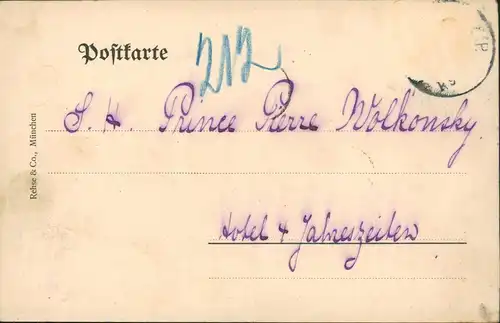 Postkarte
212
S. H. Prince Pierre Wolkonsky
Hotel 4 Jahreszeiten
Rehse & Co., München